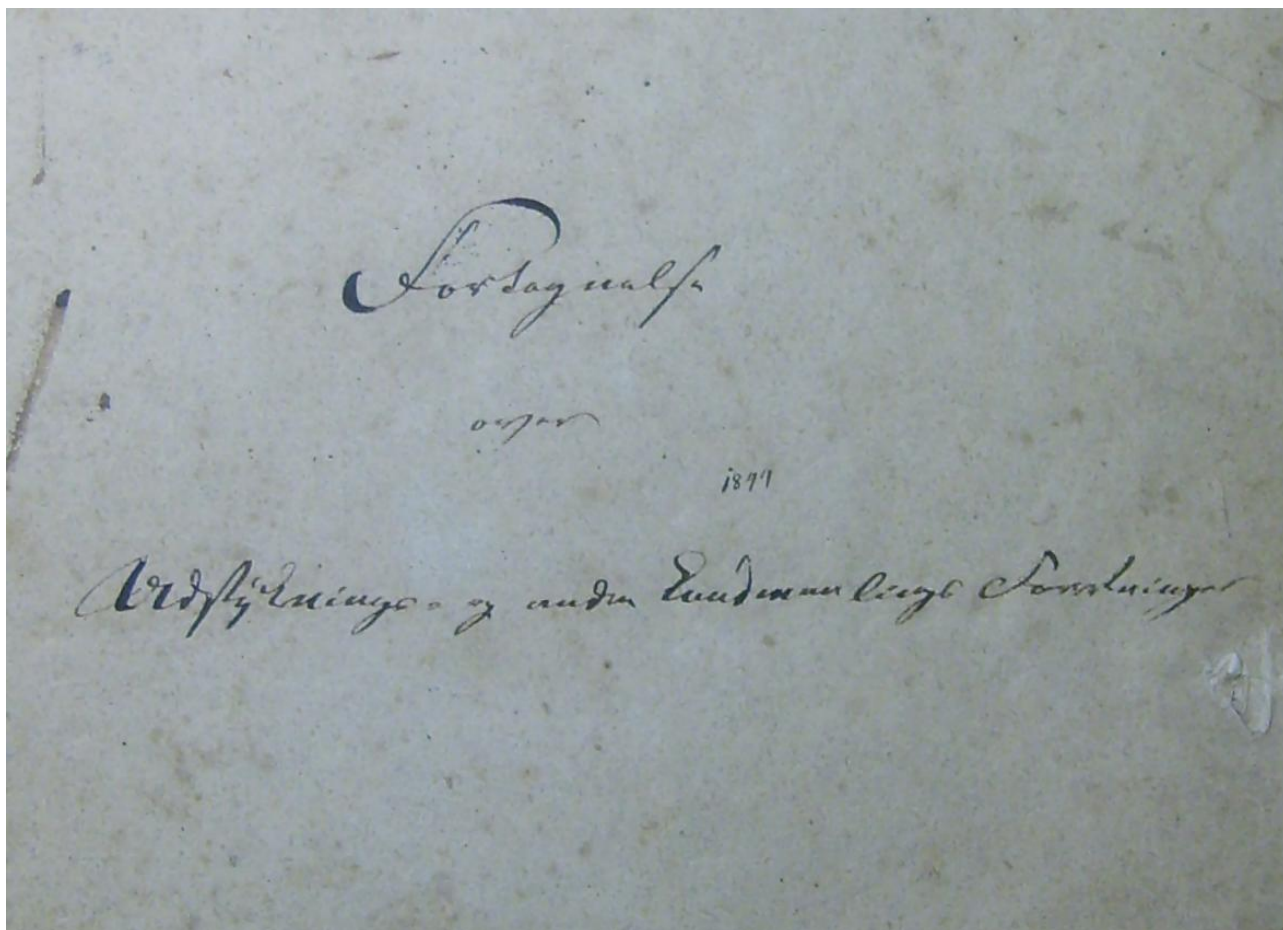 Fortegnelse
over
1844
Udstyknings- og andre Landmaalings Forretninger